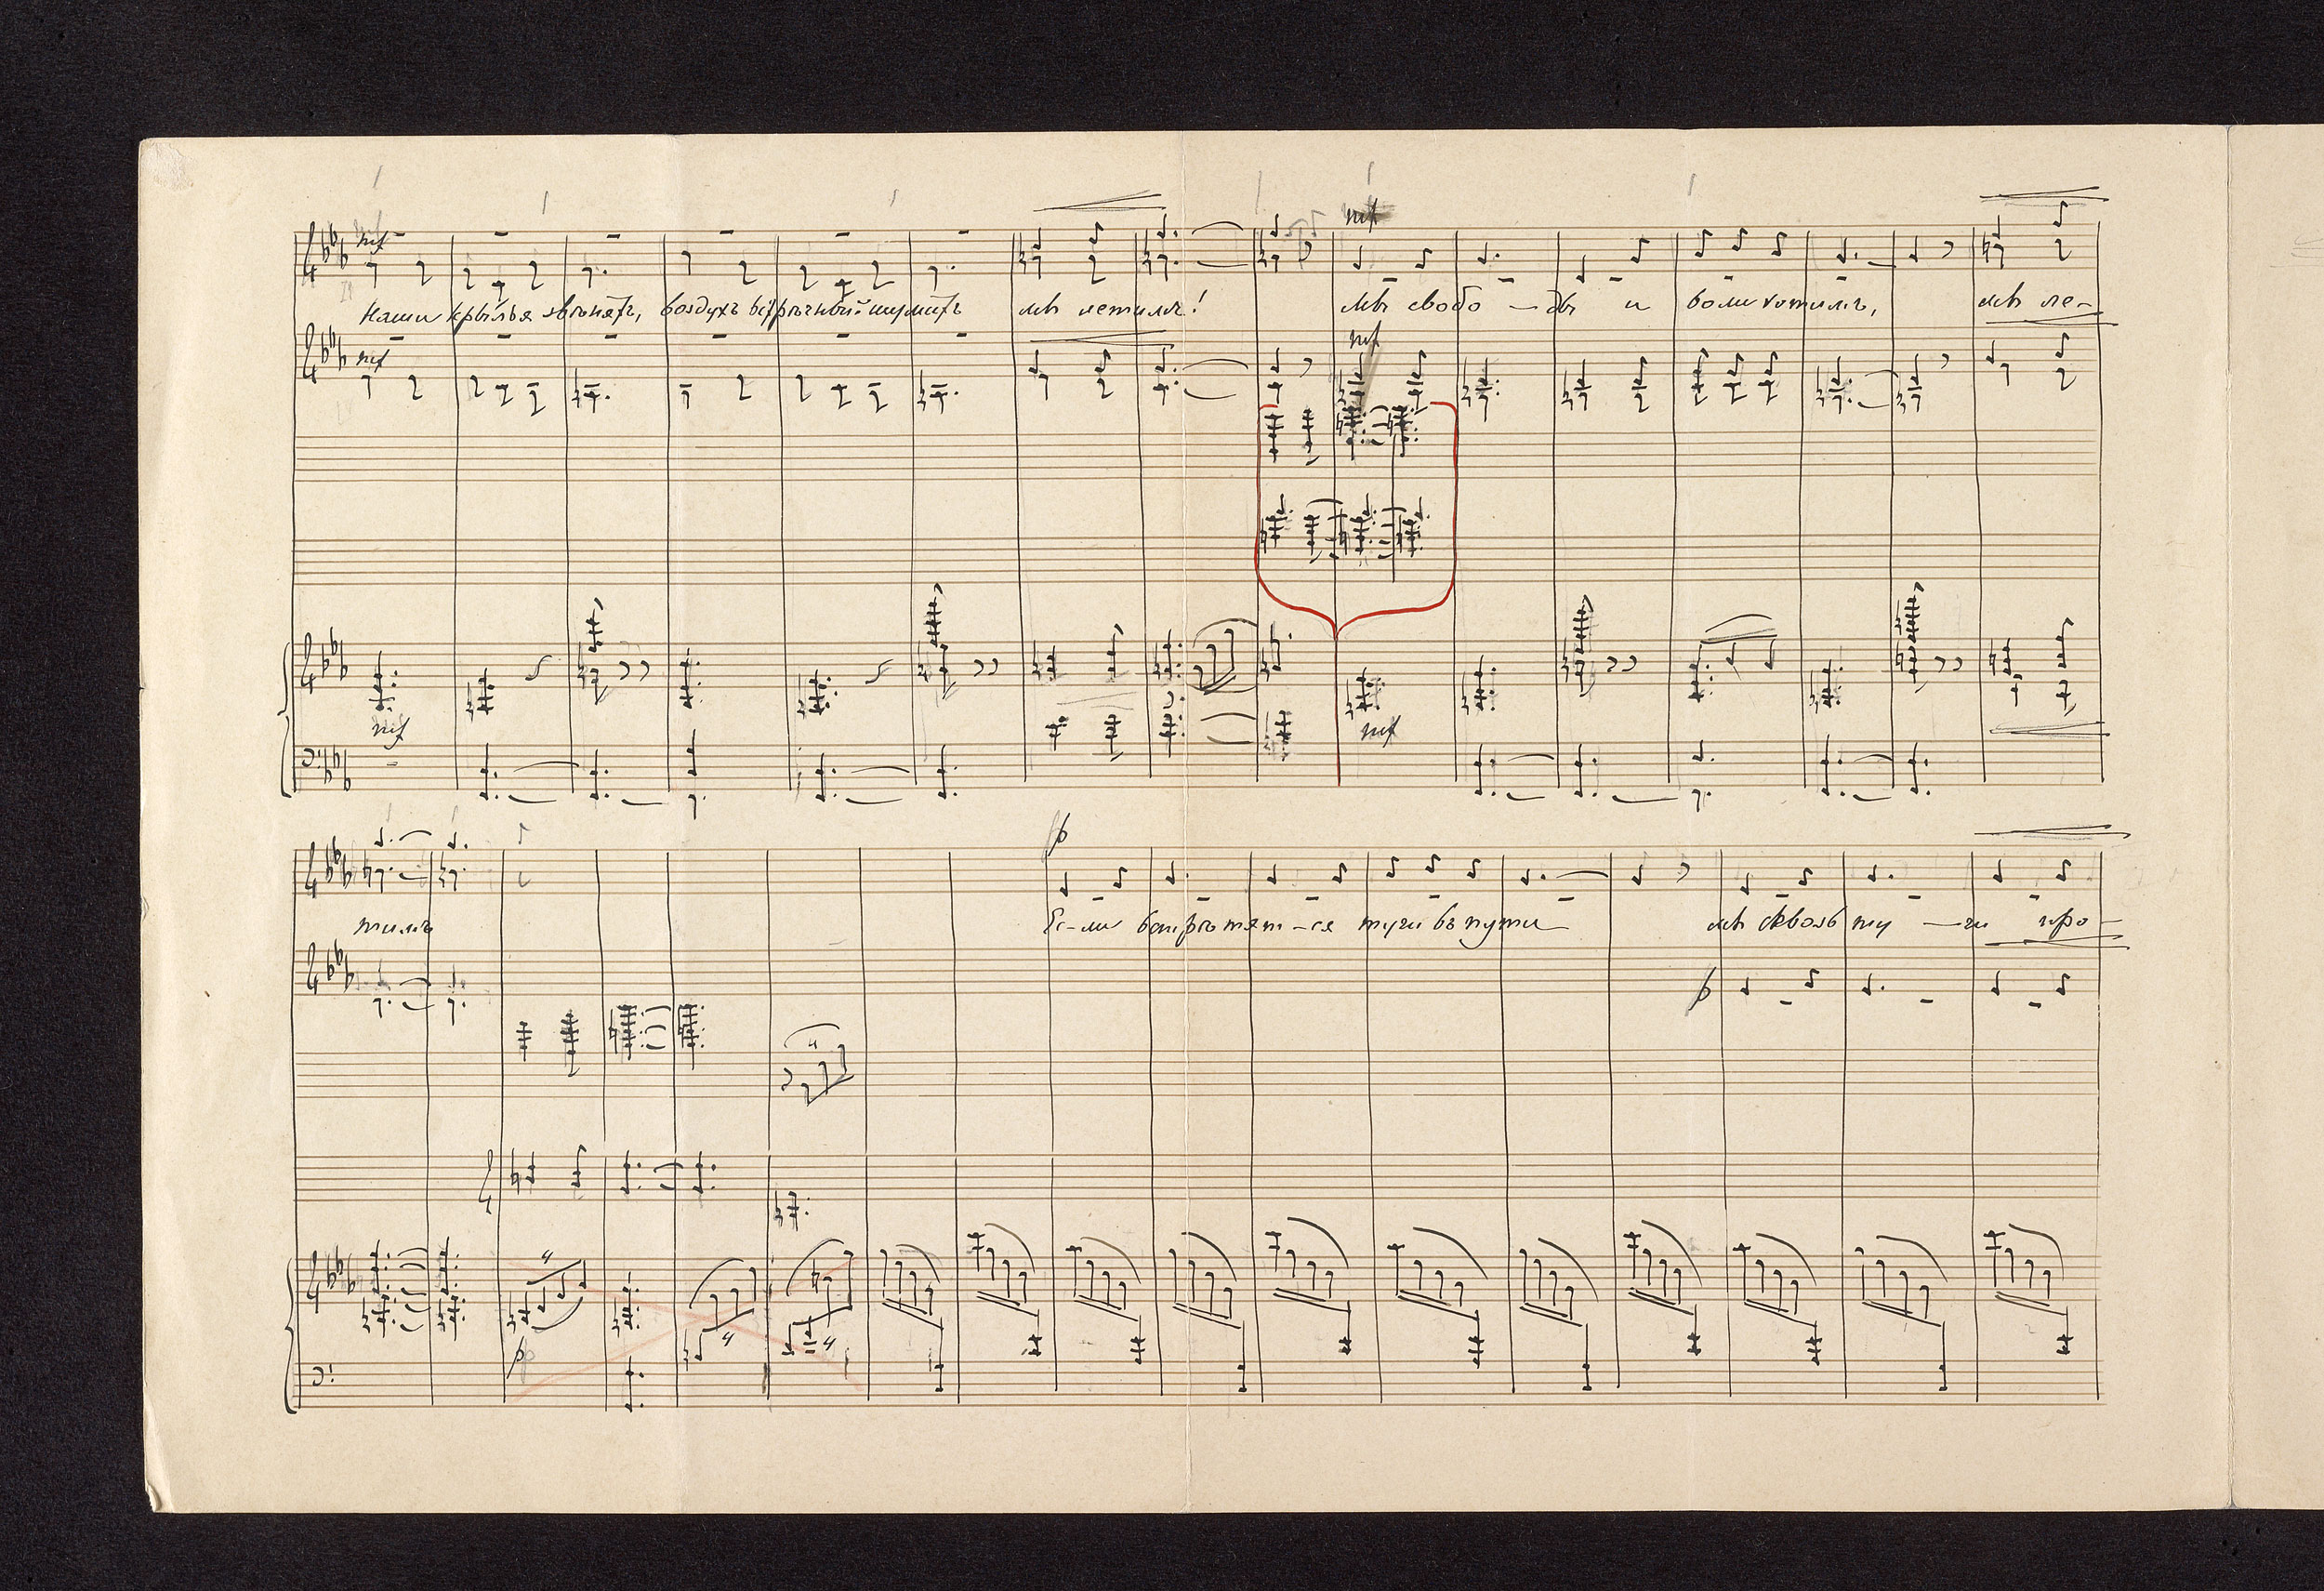 mf mf
Наши крылья звѣнятъ, воздухъ вѣтрѣчный шумитъ мы летимъ! мы свобо — ды и воли хотимъ, мы ле-
mf mf
mf mf
p
тимъ Ес-ли встрѣтят-ся тучи въ пути мы сквозь ту — чи про-
p
4
4
p 4 4